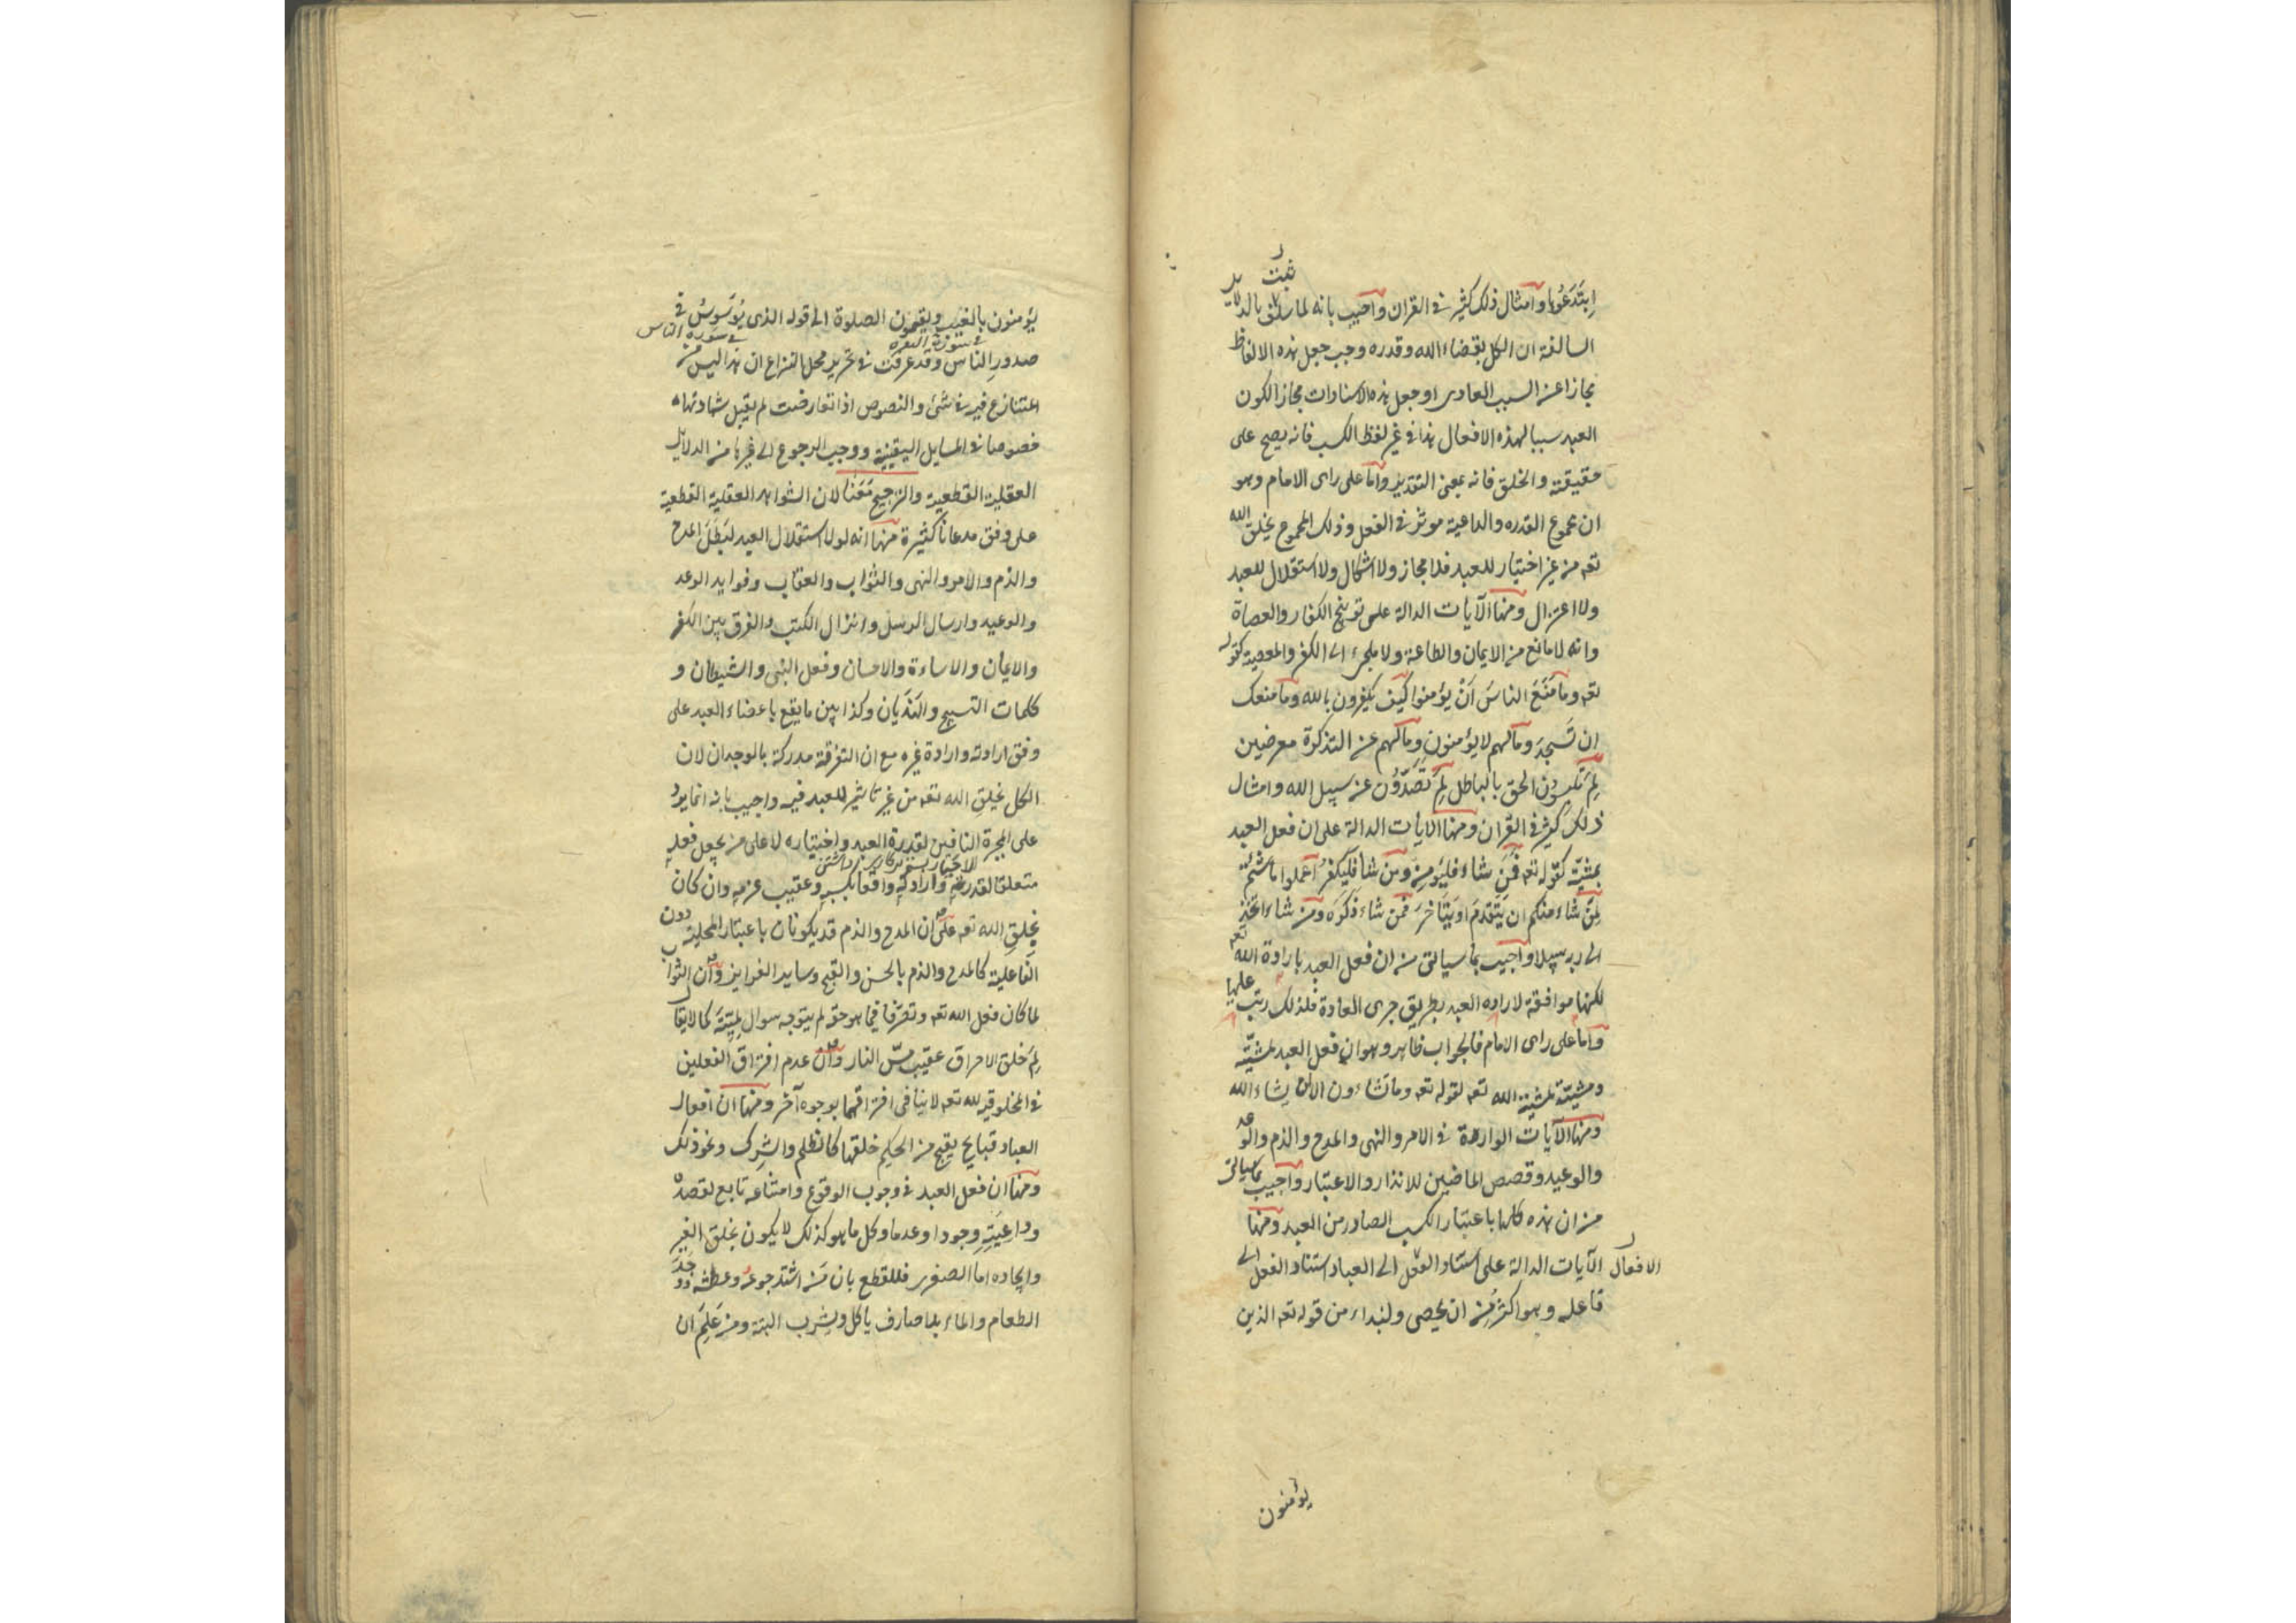 ابتدعوها وامثال ذلك كثير في القران واجيب بانه لما ثبت بالدلايل
السالفة ان الكل بقضاء الله وقدره وجب جعل هذه الالفاظ
مجازا عن السبب العادى او جعل هذه الاسنادات مجازا لكون
العبد سببا لهذه الافعال هذا في غير لفظ الكسب فانه يصح على
حقيقته والخلق فانه بمعنى التقدير واما على راى الامام وهو
ان مجموع القدره والداعية موثر في الفعل وذلك المجموع بخلق الله
تعه من غير اختيار للعبد فلا مجاز ولا اشكال ولا استقلال للعبد
ولا اعتزال ومنها الآيات الدالة على توبيخ الكفار والعصاة
وانه لا مانع من الايمان والطاعة ولا ملجىء الى الكفر والمعصية كقوله
تعه وما مَنَعَ الناسَ اَنْ يؤمنوا كيف تكفرون بالله وما منعك
ان تَسجدَ وما لهم لا يؤمنون وما لهم عن التذكرة معرضين
لِمَ تلبسون الحق بالباطل لِمَ تَصُدّون عن سبيل الله وامثال
ذلك كثير في القران ومنها الايات الدالة على ان فعل العبد
بمشيّته كقوله تعه فَمَن شاء فليؤمن ومن شا فَليكفرُ اعملوا ما شئتم
لِمَن شاء منكم ان يَتَقدمَ او يَتَاخرَ فمن شاء ذَكَرَه ومن شاء اتخذ
الى ربه سبيلا واجيب بما سياتى من ان فعل العبد بارادة الله تعه
لكنها موافقة لاراده العبد بطريق جرى العادة فلذلك رتب عليها
واما على راى الامام فالجواب ظاهر وهو ان فعل العبد بمشيّته
ومشيته بمشية الله تعه لقوله تعه وما تشاءون الا ان يشاء الله
ومنها الآيات الواردة في الامر والنهى والمدح والذم والوعد
والوعيد وقصص الماضين للانذار والاعتبار واجيب بما سياتى
من ان هذه كلها باعتبار الكسب الصادر من العبد ومنها
الآيات الدالة على استناد الفعل الى العباد استناد الفعل الى
الافعال
فاعله وهو اكثر من ان يحصى ولنبداء من قوله تعه الذين
يؤمنون
يؤمنون بالغيب ويقيمون الصلوة الى قوله الذى يُوَسْوِسُ في
في سورة البقره
في سورة الناس
صدورِ الناس وقد عرفت في تحرير محل النزاع ان هذا ليس من
المتنازع فيه في شئ والنصوص اذا تعارضت لم يقبل شهادتها
خصوصا في المسايل اليقينية ووجب الرجوع الى غيرها من الدلايل
العقلية القطعية والترجيح مَعَنا لان الشواهد العقلية القطعية
على وفق مدعانا كثيرة منها انه لولا استقلال العبد لبَطَلَ المدح
والذم والامر والنهى والثواب والعقاب وفوايد الوعد
والوعيد وارسال الرسل وانزال الكتب والفرق بين الكفر
والايمان والاساءة والاحسان وفعل النبى والشيطان و
كلمات التسبيح والهَذَيان وكذا بين ما يقع باعضاء العبد على
وفق ارادته وارادة غيره مع ان التفرقة مدركة بالوجدان لان
الكل بخلق الله تعه من غير تاثير للعبد فيه واجيب بانه انما يرد
على المجبرة النافين لقدرة العبد واختياره لا على من يجعل فعله
متعلقا لقدرته وارادته واقعا بكسبه وعقيب عزمه وان كان
بخلق الله تعه على ان المدح والذم قد يكونان باعتبار المحلية دون
الفاعلية كالمدح والذم بالحسن والقبح وساير الغرايز وان الثواب
لما كان فعل الله تعه وتصرّفا فيما هو حقه لم يتوجه سوال لميّته كما لا يقال
لِمَ خلق الاحراق عقيب مسّ النار وان عدم افتراق الفعلين
في المخلوقية لله تعه لا ينافى افتراقهما بوجوه آخر ومنها ان افعال
العباد قبايح يقبح من الحكيم خلقها كالظلم والشرك ونحو ذلك
ومنها ان فعل العبد في وجوب الوقوع وامتناعه تابع لقصده
وداعيته وجودا وعدما وكل ما هو كذلك لا يكون بخلق الغير
وايجاده اما الصغرى فللقطع بان من اشتد جوعه وعطشه ووجد
الطعام والماء بلا صارف ياكل ويشرب البتة ومن عَلِمَ ان